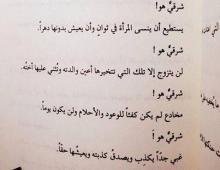 شرقيٌّ هو!
يستطيع أن ينسى المرأة في ثوانٍ وأن يعيش بدونها دهراً.
شرقيٌّ هو!
لن يتزوج إلا تلك التي تتخيرها أعين والدته وتُثني عليها أخته.
شرقيٌّ هو!
مخادع لم يكن كفئاً للوعود والأحلام ولن يكون يوماً.
شرقيٌّ هو!
غبي جداً يكذِب ويصدقُ كذبته ويعيشُها حقّاً.